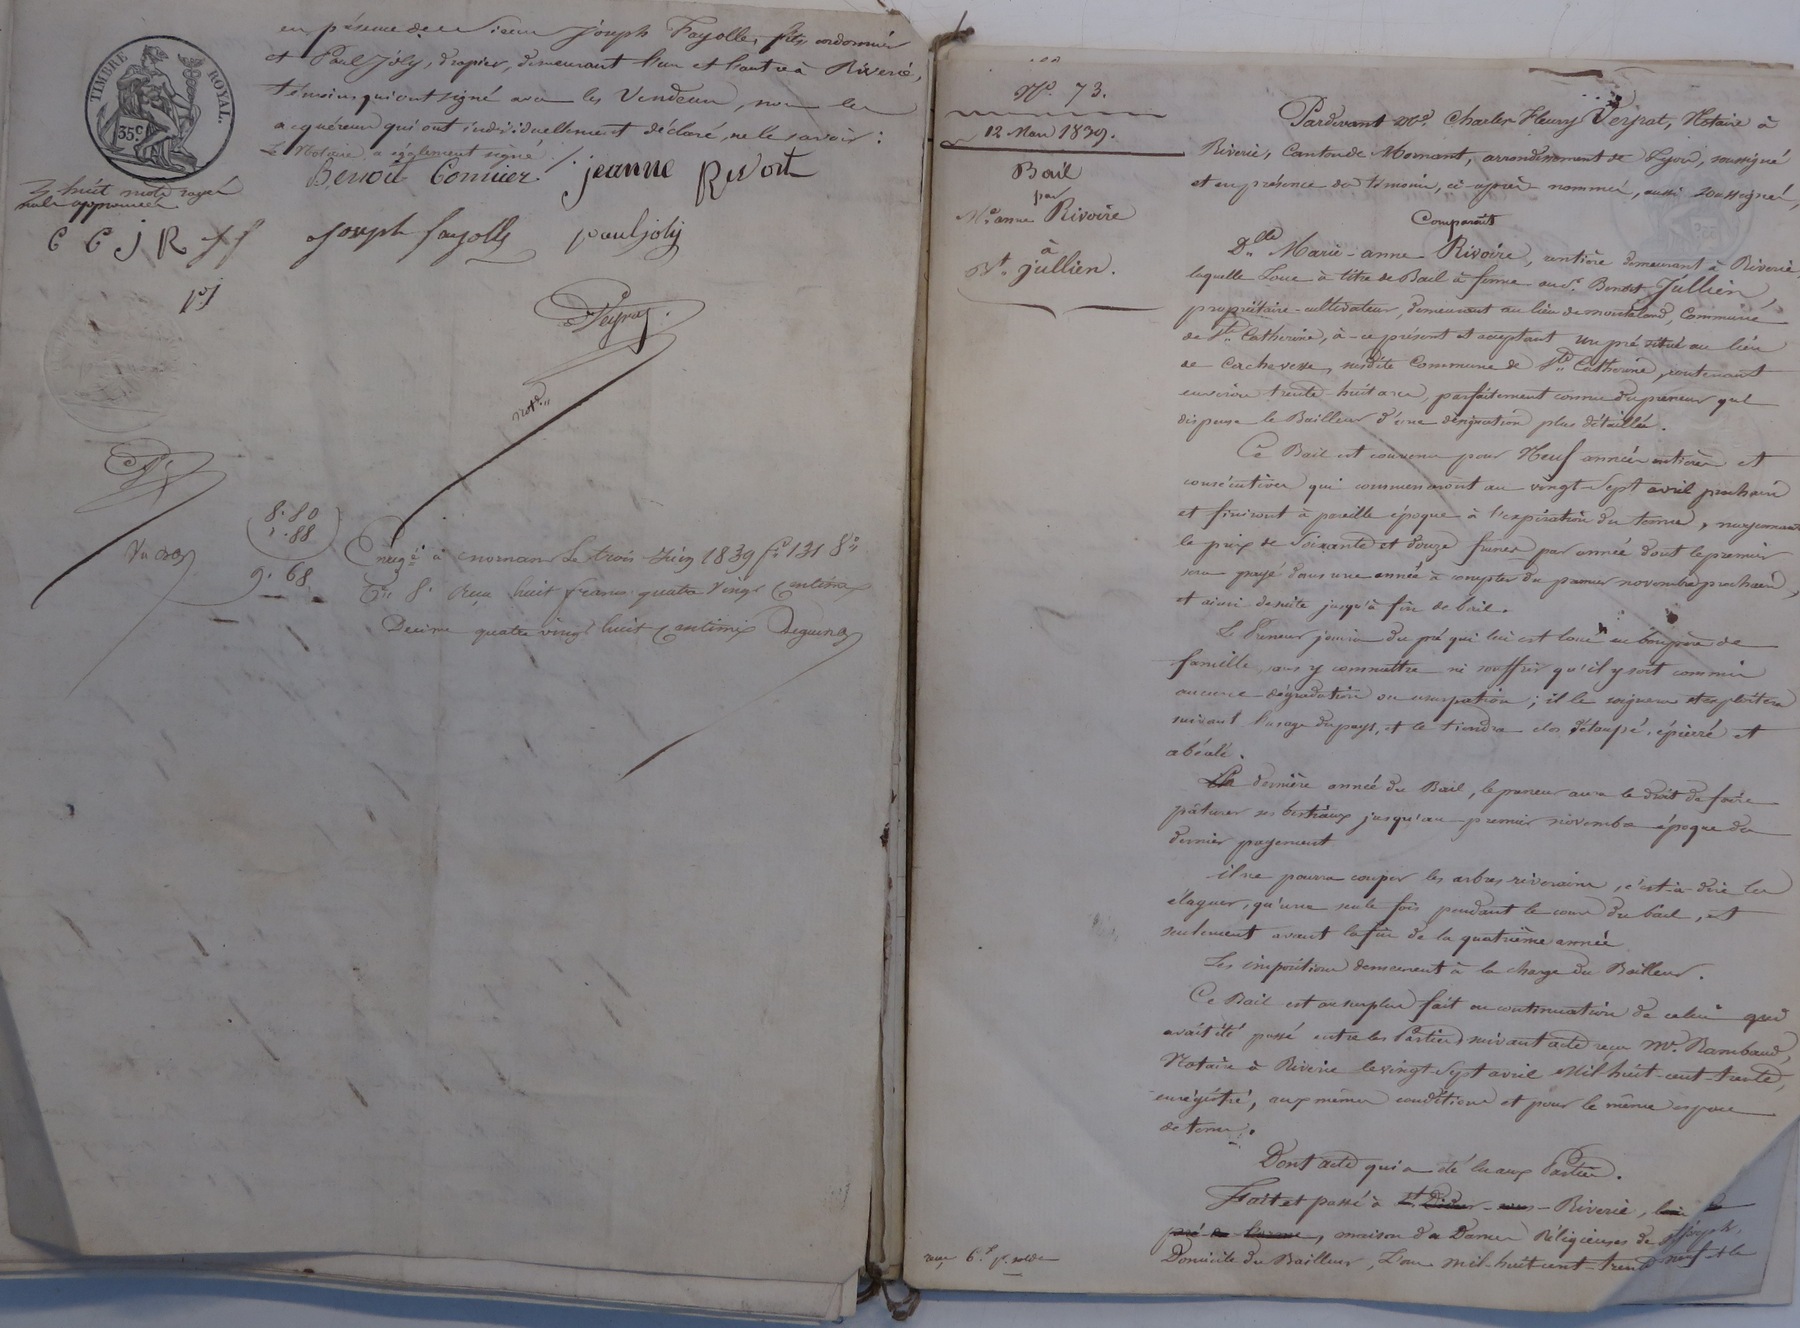 en présence de Sieur Joseph Fayolle, fils, cordonnier
et Paul Joly, drapier, demeurant l'un et l'autre à Riverie,
témoins qui ont signé avec les Vendeurs, non les
acquéreurs qui ont individuellement déclaré ne le savoir :
Le Notaire a également signé
TIMBRE ROYAL.
35c
huit mots rayés
nuls approuvés
Benoit jeanne Rivoit
C C J R J f Joseph fayolle paul joly
p.j
Veyrat
Not.re
8. 80
. 88
9. 68
Enreg.é à Mornant Le trois Juin 1839 f.o 131 R.o
C.e 8. Reçu huit francs quatre vingt Centimes
Decime quatre vingt huit Centimes
N.o 73.
12 Mars 1839.
Bail
par
M.e anne Rivoire
à
B.t Jullien.
Pardevant M.e Charles Fleury Veyrat, Notaire à
Riverie, Canton de Mornant, arrondissement de Lyon, soussigné
et en présence des témoins, ci-après nommés, aussi soussignés,
Comparaît
D.lle Marie-anne Rivoire, rentière demeurant à Riverie,
laquelle Loue à titre de Bail à ferme au S.r Benoit Jullien,
propriétaire-cultivateur, demeurant au lieu de, Commune
de S.te Catherine, à-ce présent et acceptant un pré situé au lieu
de, susdite Commune de S.te Catherine, contenant
environ trente huit ares, parfaitement connu du preneur qui
dispense le Bailleur d'une désignation plus détaillée.
Ce Bail est convenu pour Neuf années entières et
consécutives qui commenceront au vingt-Sept avril prochain
et finiront à pareille époque à l'expiration du terme, moyennant
le prix de Soixante et douze francs par année dont le premier
sera payé dans une année à compter du premier novembre prochain,
et ainsi de suite jusqu'à fin de bail.
Le Preneur jouira du pré qui lui est loué en bon père de
famille sans y commettre ni souffrir qu'il y soit commis
aucune dégradation ou usurpation ; il le soignera et exploitera
suivant l'usage du pays, et le tiendra clos, détaupé, épierré et
abéalé.
La dernière année du Bail, le preneur aura le droit de faire
pâturer ses bestiaux jusqu'au premier novembre époque du
dernier payement
il ne pourra couper les arbres riverains, c'est-à-dire les
élaguer, qu'une seule fois pendant le cours du bail, et
seulement avant la fin de la quatrième année
Les impositions demeurent à la charge du Bailleur.
Ce Bail est au surplus fait en continuation de celui qui
avait été passé entre les Parties suivant acte reçu M.e Rambaud,
Notaire à Riverie le vingt-Sept avril Mil-huit-cent-trente,
enrégistré, aux mêmes conditions et pour le même espace
de tems.
Dont acte qui a été lu aux Parties.
Fait et passé à Riverie,
maison des Dames Réligieuses de S.t Joseph,
Domicile du Bailleur, L'an mil-huit-cent-trente neuf et le